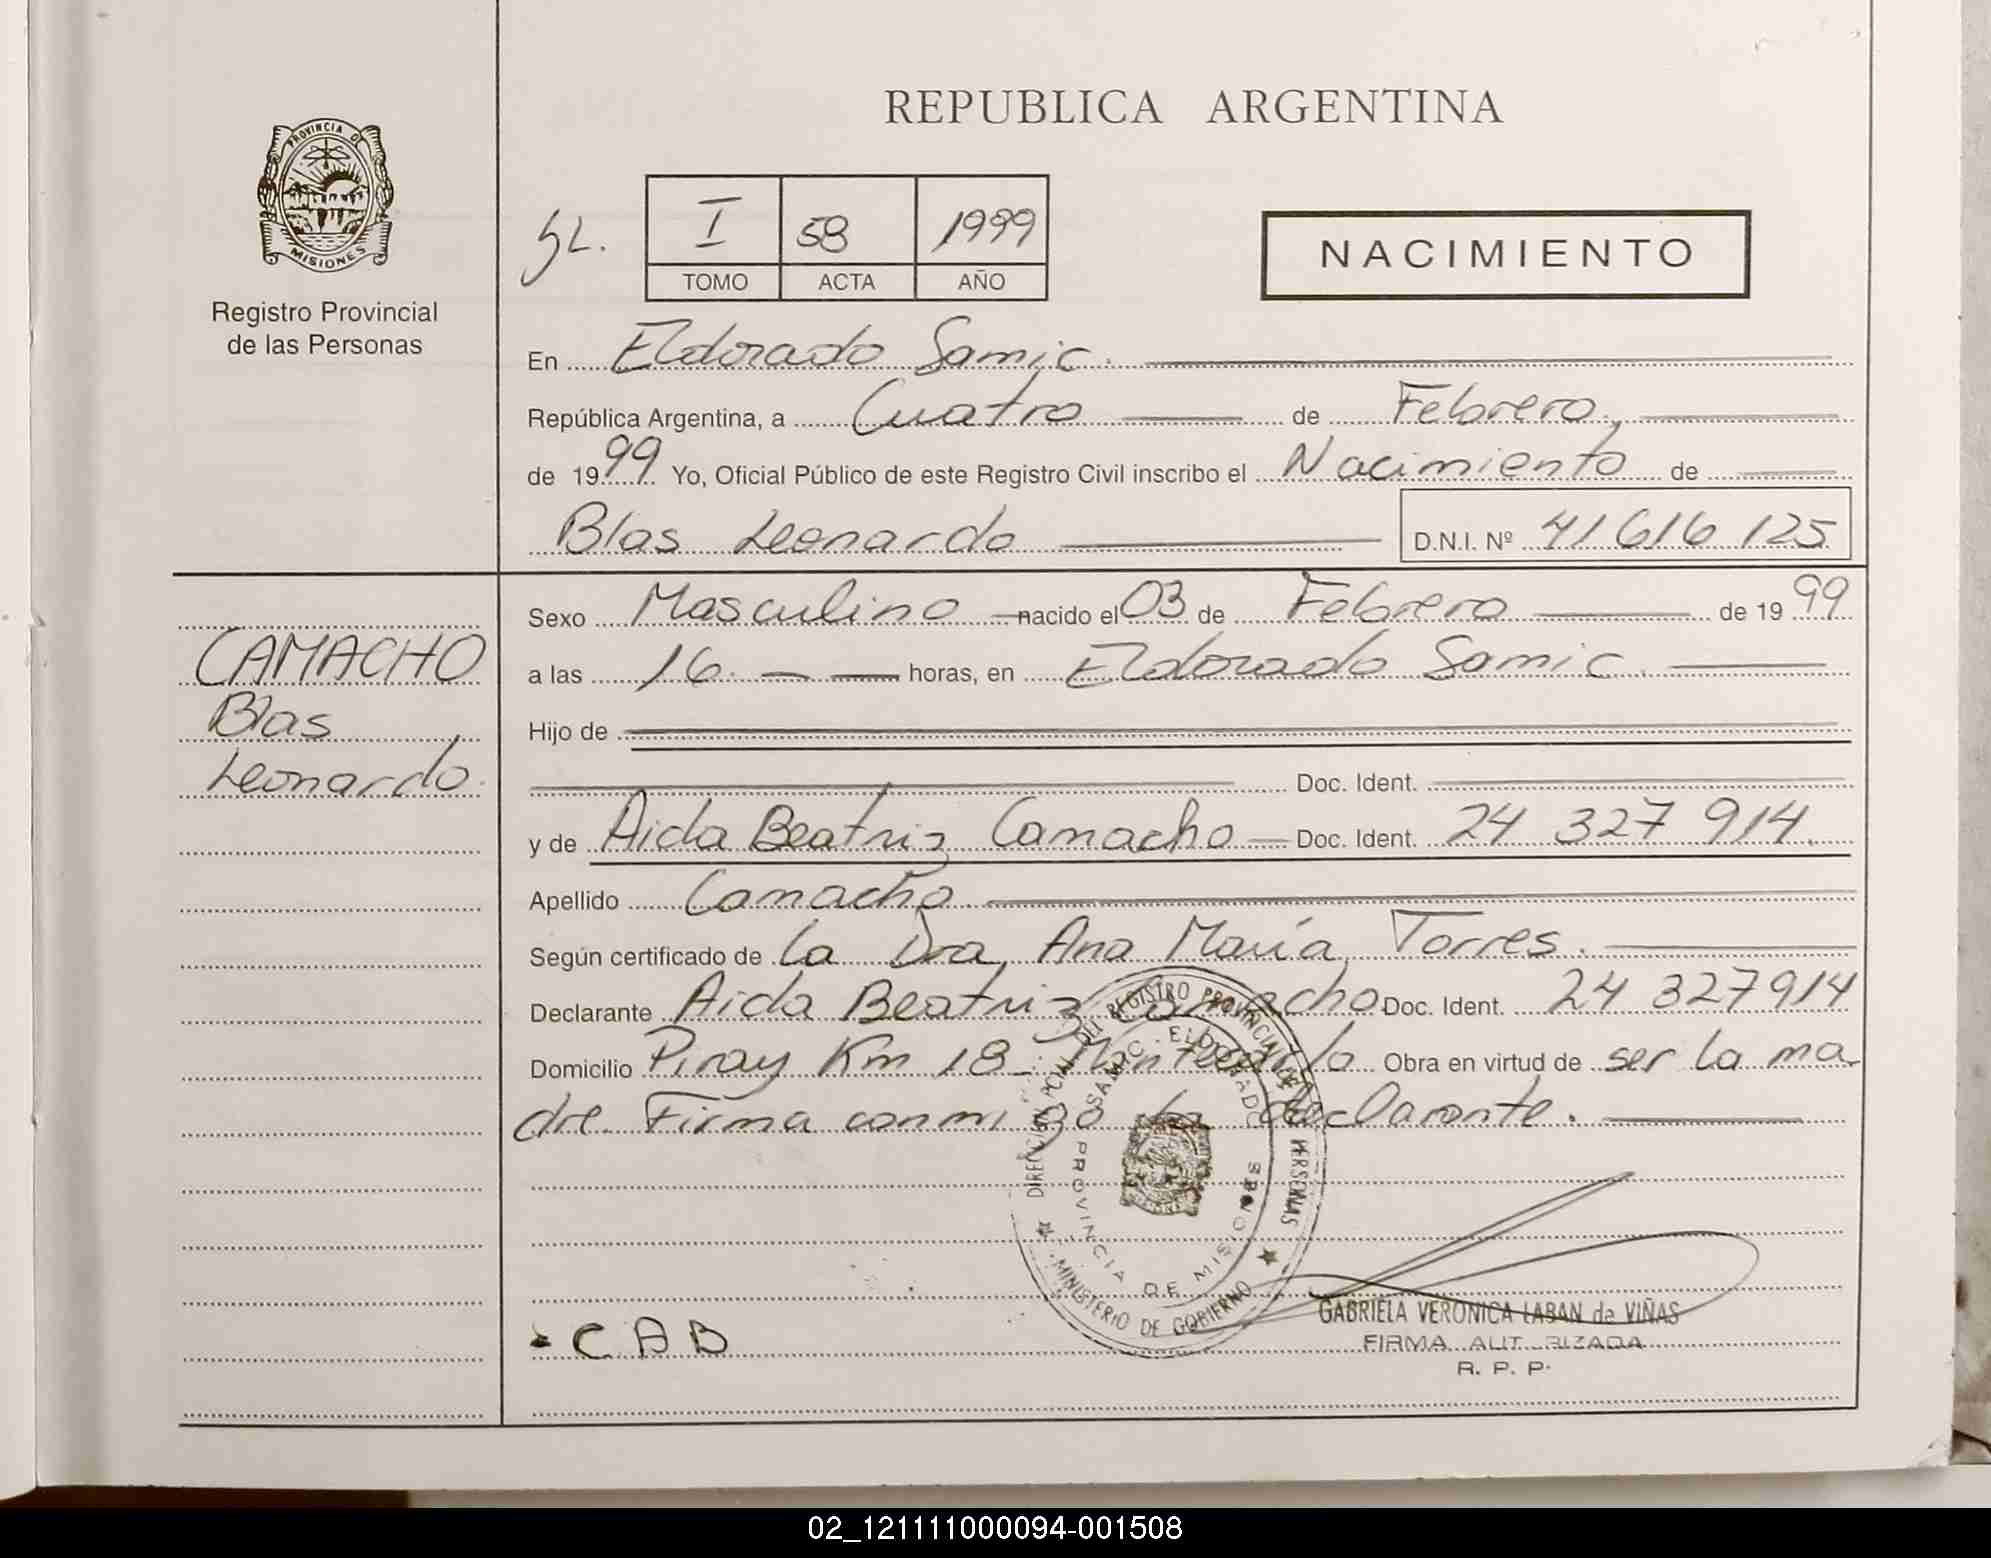 REPUBLICA ARGENTINA
PROVINCIA DE
MISIONES
Registro Provincial
de las Personas
I 58 1999
TOMO ACTA AÑO
NACIMIENTO
En Eldorado Samic.
República Argentina, a Cuatro de Febrero,
de 1999 Yo, Oficial Público de este Registro Civil inscribo el Nacimiento de
Blas Leonardo D.N.I. Nº 41 616 125
CAMACHO
Blas
Leonardo.
Sexo Masculino nacido el 03 de Febrero de 1999
a las 16. horas, en Eldorado Samic.
Hijo de
Doc. Ident.
y de Aida Beatriz Camacho Doc. Ident. 24 327 914.
Apellido Camacho.
Según certificado de La Dra. Ana María Torres.
Declarante Aida Beatriz Camacho Doc. Ident. 24 327914
Domicilio Piray Km 18 - Montecarlo Obra en virtud de ser la ma
dre. Firma conmigo la declarante.
DIRECCION PCIAL DEL REGISTRO PROVINCIAL DE LAS PERSONAS
MINISTERIO DE GOBIERNO
SAMIC - ELDORADO
PROVINCIA DE MISIONES
CAB
GABRIELA VERONICA LABAN de VIÑAS
FIRMA AUTORIZADA
R. P. P.
02_121111000094-001508